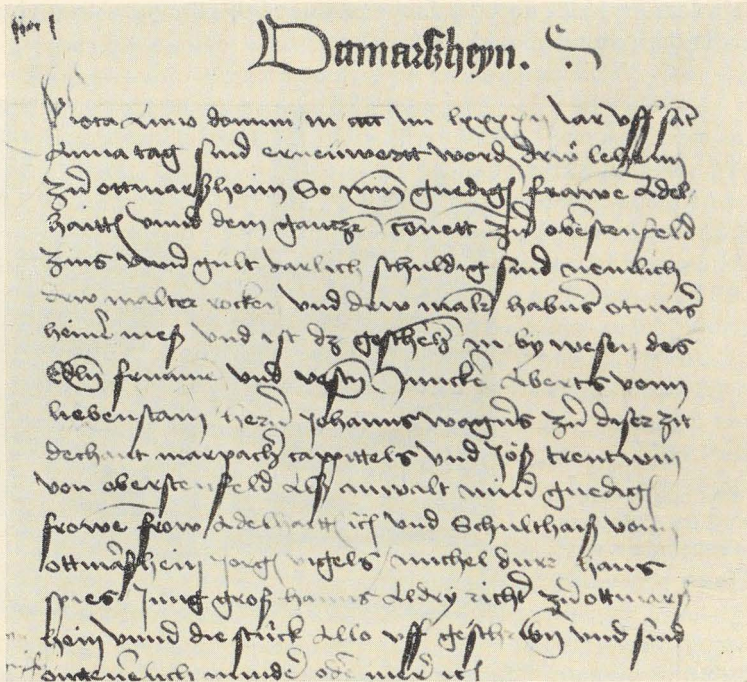 Otmarßheyn.
Nota anno domini m cccc im lxxxx Jar vff sāt
Anna tag sind erneuwertt word drw lehenn
zů ottmarßheim So min gnedige frawe Adel
haitt vnnd dem gantzē cōuett zů oberstenfeld
zins vnnd gult Jarlich schuldig sind nemlich
drw malter rocken vnd drw malt habers otmarß
heimer meß vnd ist dz geschehē in by wesen des
Edln frumm vnd vesten Juncker Aberts vonn
liebenstain hern Johanns wagners zů diser zit
dechant marpach cappittels vnd Joß trentwin
von oberstenfeld Alß anwalt miner gnedige
frowe frow Adelhaitt ic vnd Schulthaiß vonn
ottmarßhein Jorg vigels michel durr hans
spies Jung groß hanns Aldry richter zů ottmarß
hein vnnd die stůck Also vff geschriben vnd sind
minder oder mer ic